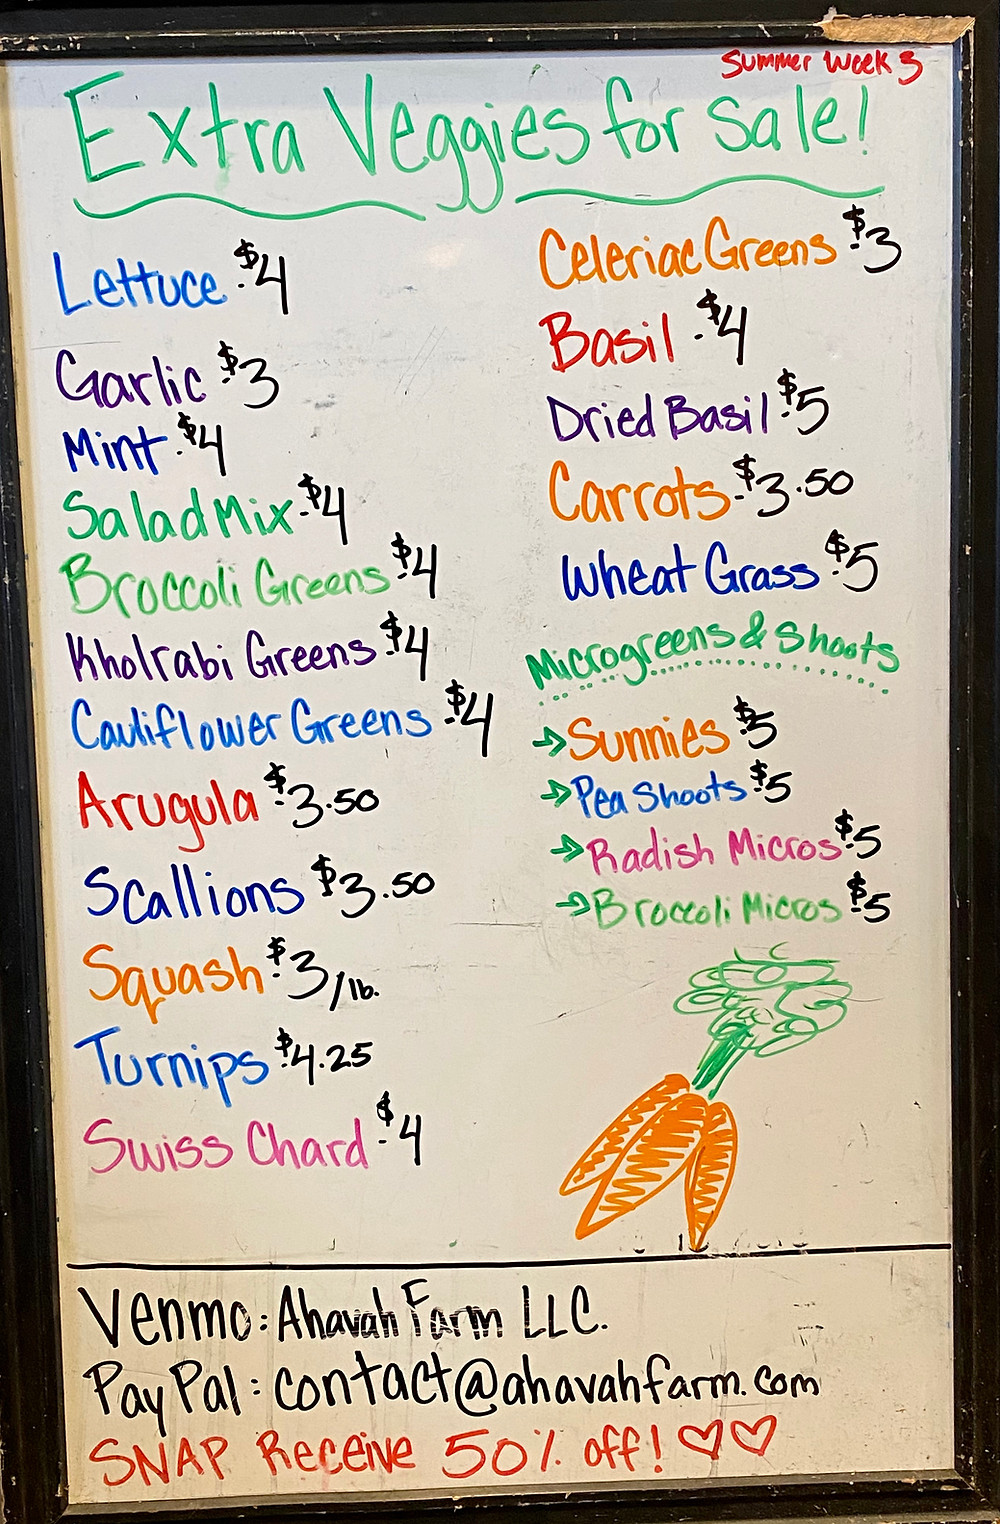 Summer Week 3
Extra Veggies for Sale!
Lettuce $4
Garlic $3
Mint $4
Salad Mix $4
Broccoli Greens $4
Kholrabi Greens $4
Cauliflower Greens $4
Arugula $3.50
Scallions $3.50
Squash $3/lb.
Turnips $4.25
Swiss Chard $4
Celeriac Greens $3
Basil $4
Dried Basil $5
Carrots $3.50
Wheat Grass $5
Microgreens & Shoots
→ Sunnies $5
→ Pea Shoots $5
→ Radish Micros $5
→ Broccoli Micros $5
Venmo: Ahavah Farm LLC.
PayPal: contact@ahavahfarm.com
SNAP Receive 50% off! ♡♡